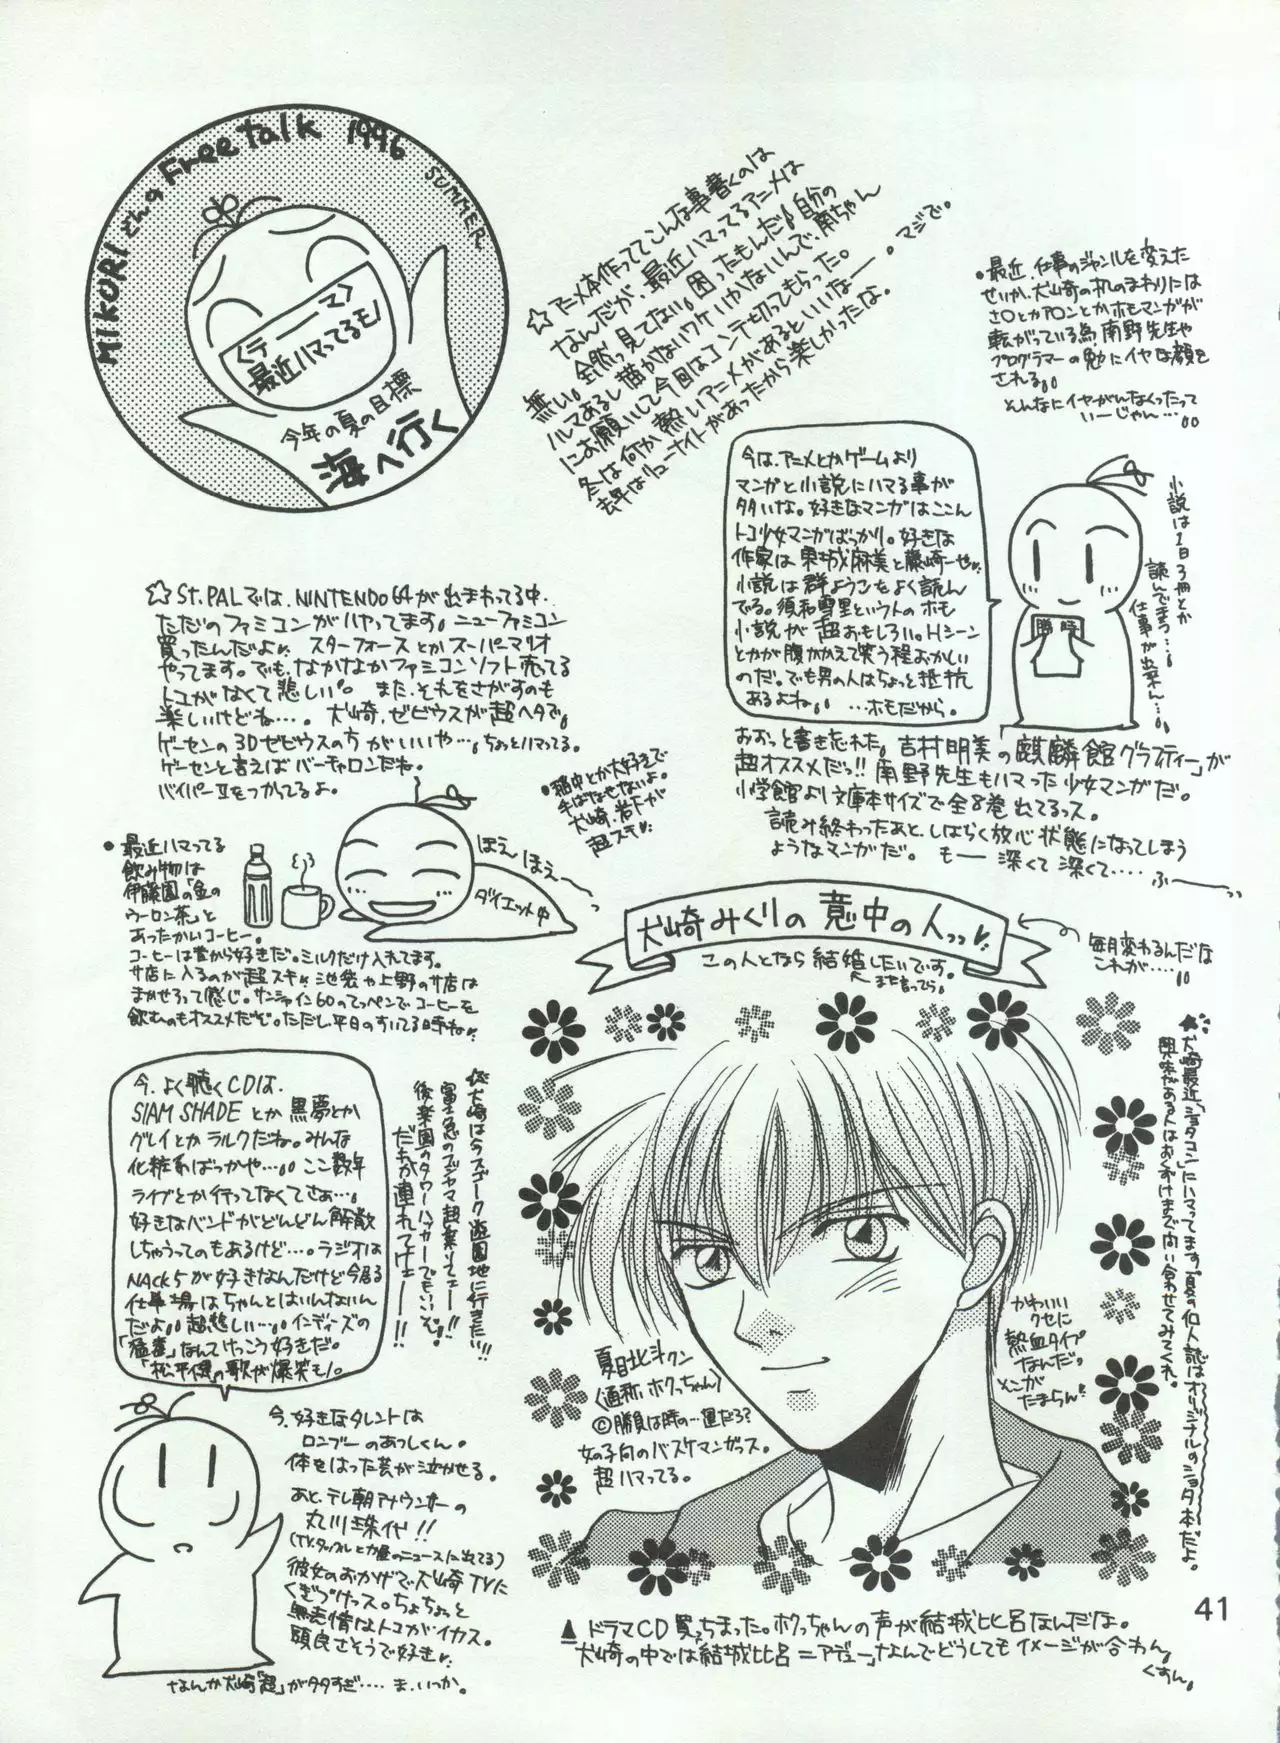 MIKURIさんのFree talk 1996 SUMMER
<テーマ>
最近ハマってるモノ
今年の夏の目標
海へ行く
☆アニメ本作っててこんな事書くのは
なんだが、最近ハマってるアニメは
無い。全然っ見てない。困ったもんだ。自分の
ノルマあるし描かないワケいかないんで、南ちゃん
にお願いして今回はコンテ切ってもらった。
冬は何か熱いアニメがあるといいなー。マジで。
去年はリューナイトがあったから楽しかったな。
●最近、仕事のジャンルを変えた
せいか、犬崎の机のまわりには
さ○とかア○ンとかホモマンガが
転がっている為、南野先生や
プログラマーの勉にイヤな顔を
される。。
そんなにイヤがんなくたって
いーじゃん…。。
今は、アニメとかゲームより
マンガと小説にハマる事が
多いな。好きなマンガはここん
トコ少女マンガばっかり。好きな
作家は東城麻美と藤崎一也。
小説は群ようこをよく読ん
でる。須和雪里という人のホモ
小説が超おもしろい。Hシーン
とかが腹かかえて笑う程おかしい
のだ。でも男の人はちょっと抵抗
あるよね。。 …ホモだから。
小説は1日3冊とか
読んでまっ…。
仕事が出来ん…。
おおっと書き忘れた。吉村明美の「麒麟館グラフィティー」が
超オススメだっ!!南野先生もハマった少女マンガだ。
小学館より文庫本サイズで全8巻出てるっス。
読み終わったあと、しばらく放心状態になってしまう
ようなマンガだ。 もー 深くて深くて…. ふー
☆St.PALでは、NINTENDO64が出まわってる中、
ただのファミコンがハヤってます。ニューファミコン
買ったんだよ。 スターフォースとかスーパーマリオ
やってます。でも、なかなかファミコンソフト売ってる
トコがなくて悲しい。 また、それをさがすのも
楽しいけどね…。 犬崎、ゼビウスが超ヘタで。
ゲーセンの3Dゼビウスの方がいいや…。ちょっとハマってる。
ゲーセンと言えばバーチャロンだね。
バイパーⅡをつかってるよ。
●稲中とか大好きで
手ばなせないよ。
犬崎、岩下が
超スキ
ほえ ほえ〜
ダイエット中
●最近ハマってる
飲み物は
伊藤園の「金の
ウーロン茶」と
あったかいコーヒー。
コーヒーは昔から好きだ。ミルクだけ入れてます。
サ店に入るのが超スキ。池袋や上野のサ店は
まかせろって感じ。サンシャイン60のてっぺんでコーヒーを
飲むのもオススメだぞ。ただし平日のすいてる時ね
犬崎みくりの意中の人っっ
この人となら結婚したいです。
また言ってら。
毎月変わるんだな
これが….。。
今、よく聴くCDは、
SIAM SHADEとか黒夢とか
グレイとかラルクだね。みんな
化粧系ばっかや…。。ここ数年
ライブとか行ってなくてさぁ…。
好きなバンドがどんどん解散
しちゃうってのもあるけど…。ラジオは
NACK5が好きなんだけど今居る
仕事場はちゃんとはいんないん
だよ。。超悲しい…。インディーズの
「猛毒」なんてけっこう好きだ。
「松平健」の歌が爆笑モノ。
☆犬崎は今スゴーク遊園地に行きたい!!
富士急のフジヤマ超乗りてェー!!
後楽園のタワーハッカーでもいいぞ。
だれか連れてけェーー!!
★犬崎最近「ショタコン」にハマってます。夏の個人誌はオリジナルのショタ本だよ。
興味がある人はおくづけまで問い合わせてみてくれ。
かわいい
クセに
熱血タイプ
なんだ。
そこが
たまらん
夏目北斗クン
(通称、ホクっちゃん)
©勝負は時の…運だろ?
女の子向のバスケマンガっス。
超ハマってる。
今、好きなタレントは
ロンブーのあつしくん。
体をはった芸が泣かせる。
あと、テレ朝アナウンサーの
丸川珠代!!
(TVタックルとか昼のニュースに出てる)
彼女のおかげで犬崎TVに
くぎづけっス。ちょちょっと
無表情なトコがイカス。
頭良さそうで好き
なんか犬崎「超」が多すぎ…. ま、いっか。
▲ドラマCD買っちまった。ホクっちゃんの声が結城比呂なんだな。
犬崎の中では結城比呂＝「アデュー」なんでどうしてもイメージが合わん。
くすん。
41